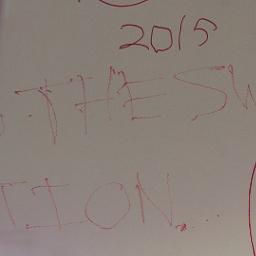 2015
THE SW
TION...